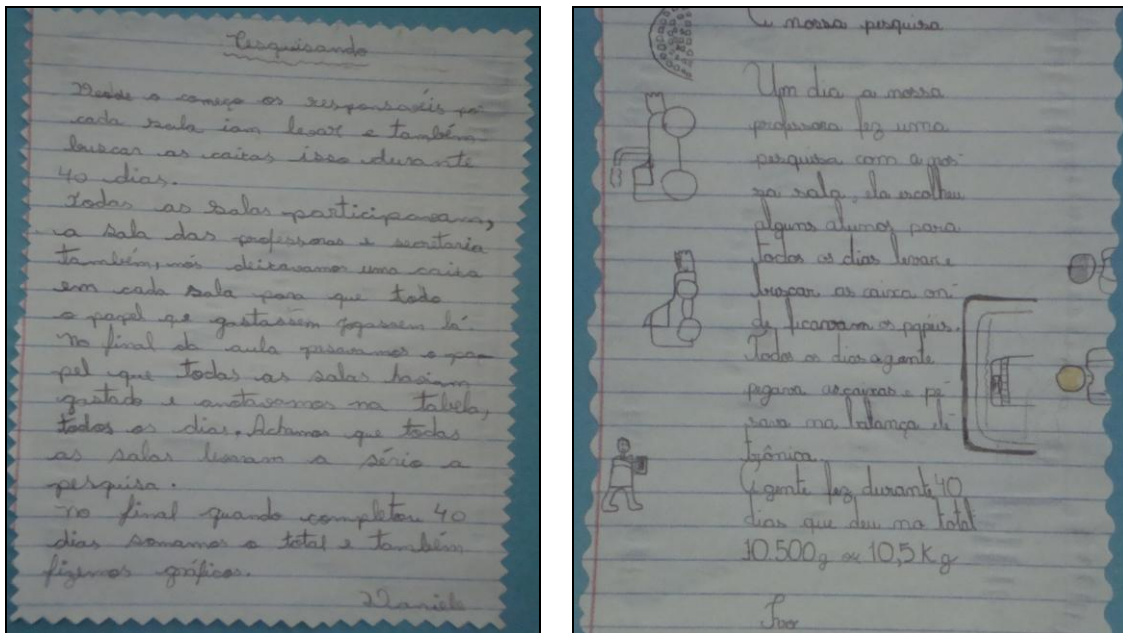 Pesquisando
Desde o começo os responsavéis por
cada sala iam levar e também
buscar as caixas isso durante
40 dias.
Todas as salas participaram,
a sala das professoras e secretaria
também, nós deixavamos uma caixa
em cada sala para que todo
o papel qe gastassem jogassem lá.
No final da aula pesavamos o pa-
pel que todas as salas haviam
gastado e anotavamos na tabela,
todos os dias. Achamos que todas
as salas levaram a sério a
pesquisa.
No final quando completou 40
dias somamos o total e também
fizemos gráficos.
Daniele
A nossa pesquisa
Um dia a nossa
professora fez uma
pesquisa com a nos-
sa sala, ela escolheu
alguns alunos para
todos os dias levar e
buscar as caixa on-
de ficavam os papeis.
Todos os dias agente
pegava as caixas e pe-
sava na balança ele-
trônica.
A gente fez durante 40
dias que deu no total
10.500g ou 10,5Kg